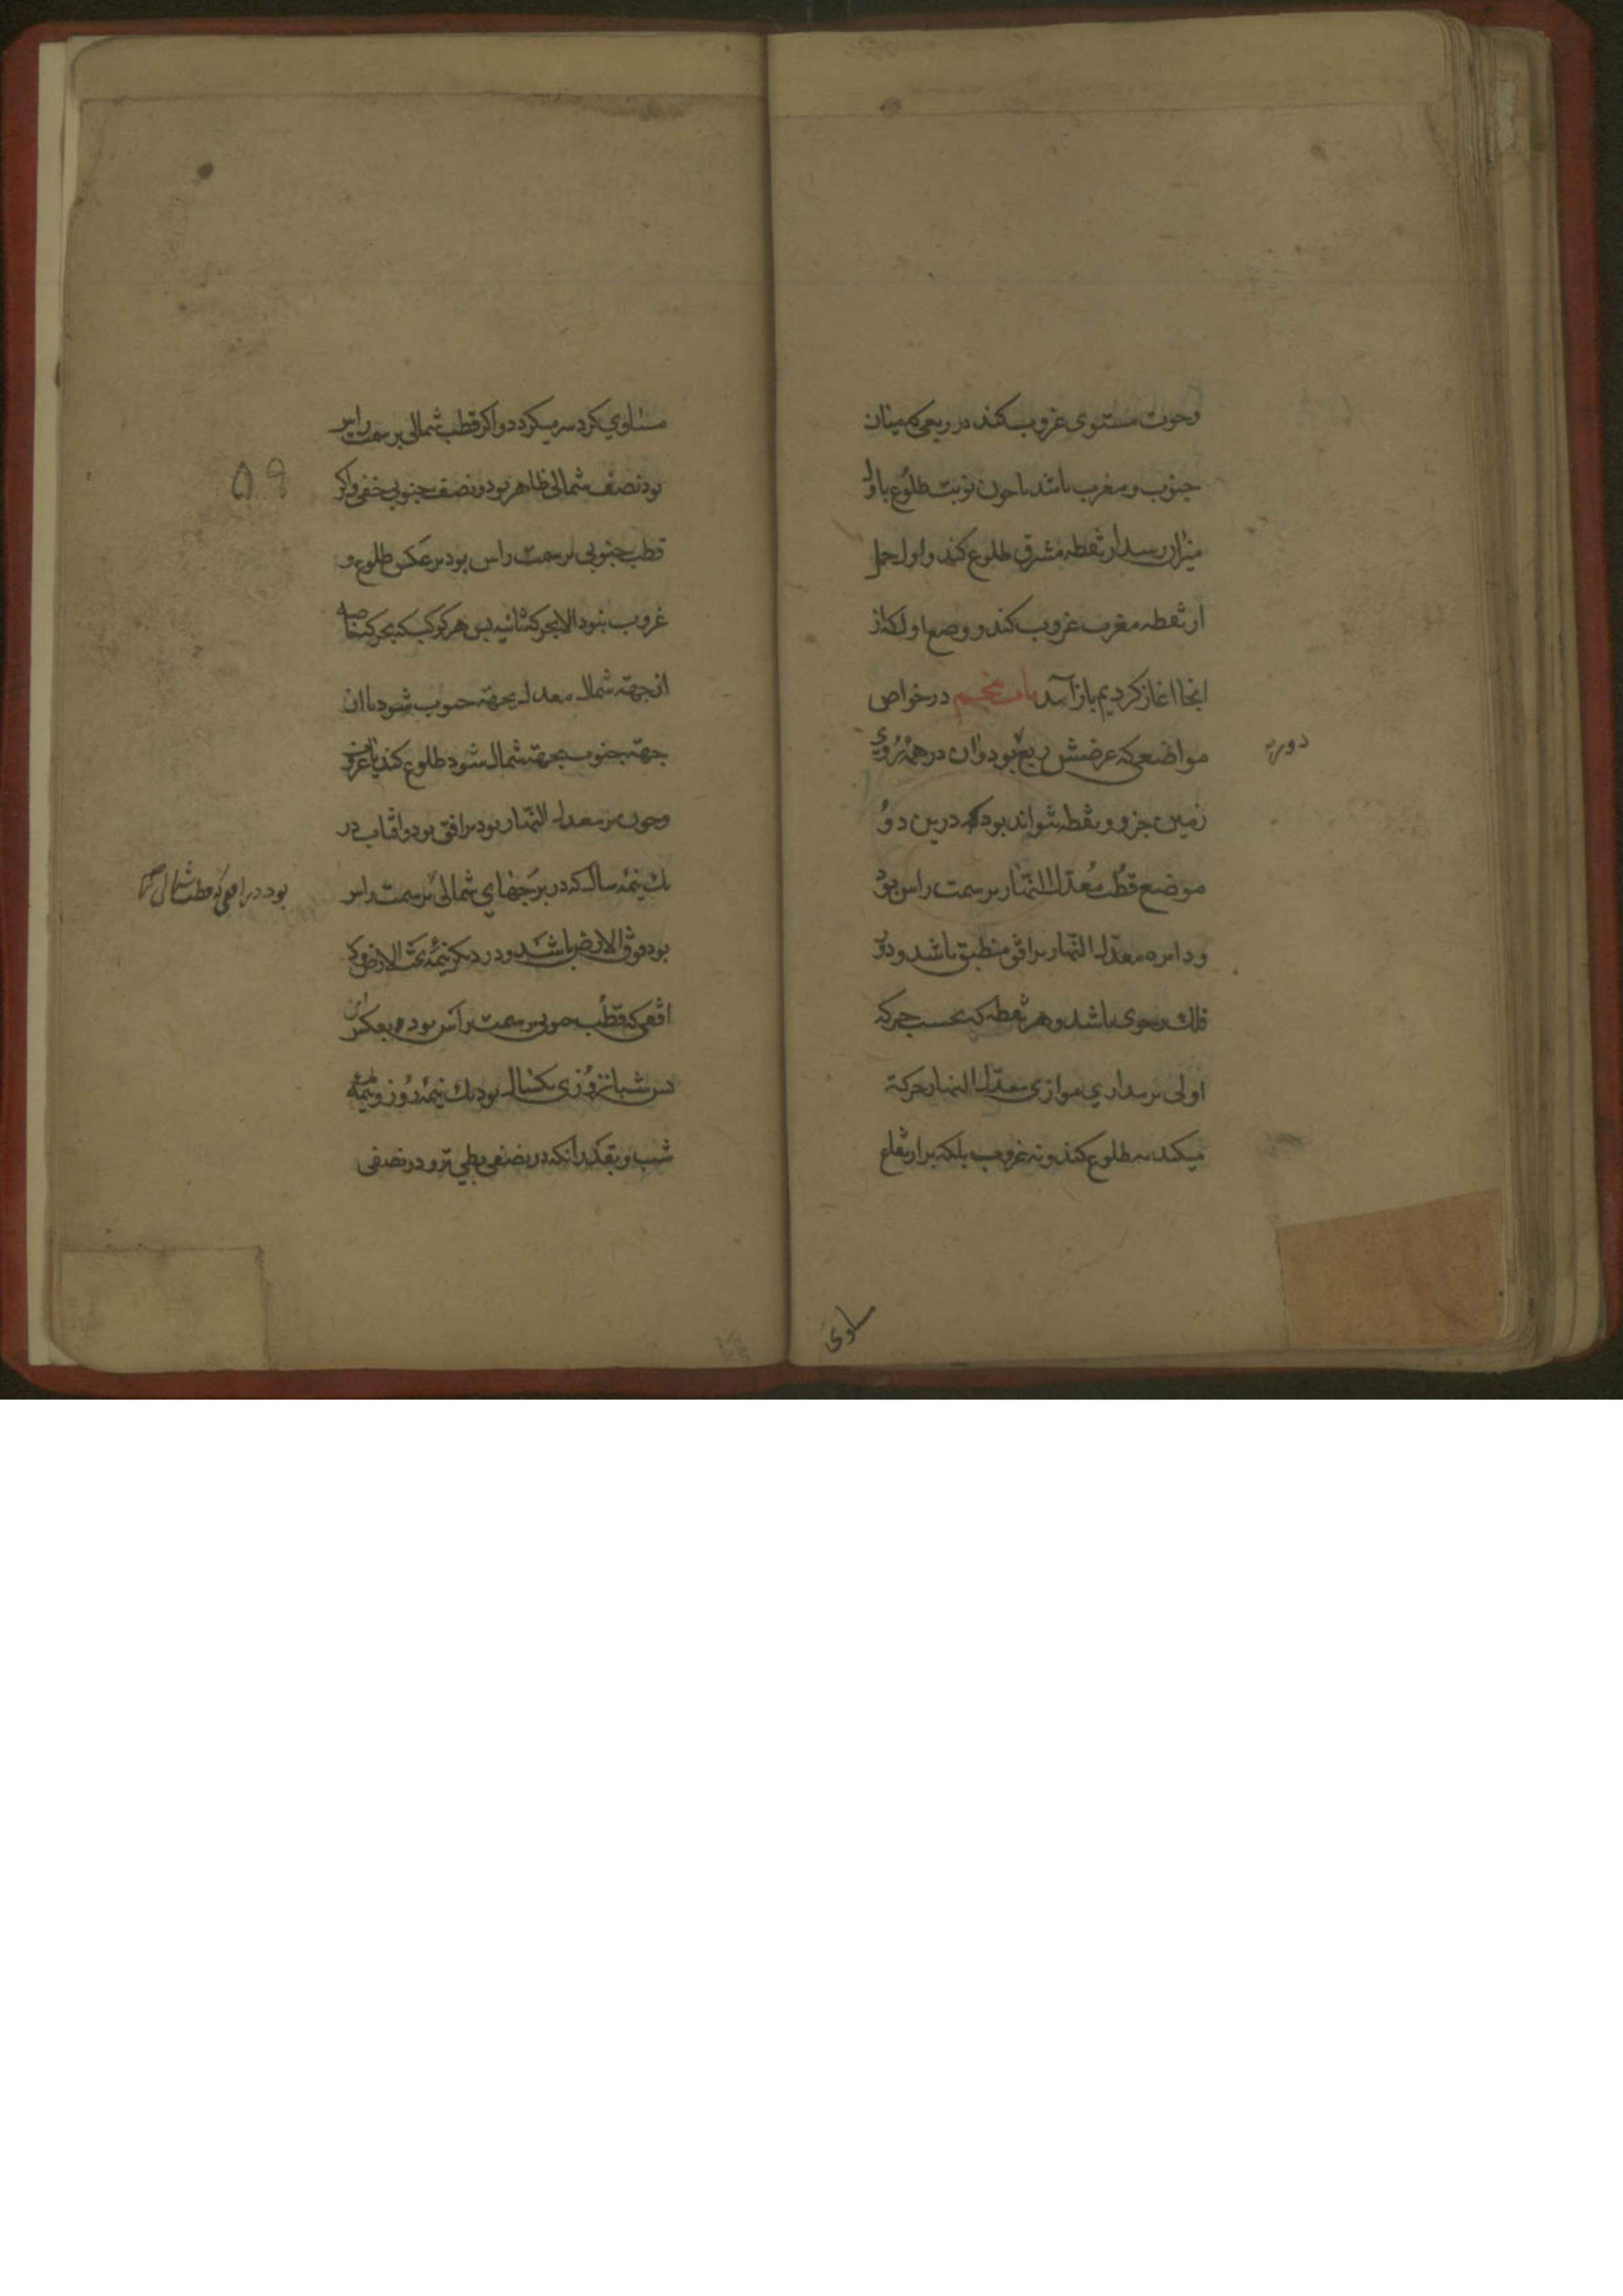 وحوت مستوی غروب کند در ربعی که میان
جنوب و مغرب باشد تا چون نوبت طلوع باول
میزان رسد از نقطه مشرق طلوع کند و اول حمل
از نقطه مغرب غروب کند و وضع اول که از
انجا اغاز کردیم باز آمد باب پنجم در خواص
مواضعی که عرضش ربع بود و ان در همه روی
زمین جز دو نقطه نتواند بود که درین دو
موضع قطب معدل النهار بر سمت راس بود
و دایره معدل النهار بر افق منطبق باشد و دور
فلک رحوی باشد و هر نقطه که بحسب حرکه
اولی بر مداری موازی معدل النهار حرکة
میکند نه طلوع کند و نه غروب بلکه بر ارتفاع
مساوی
مساوی کرد سر میکردد و اکر قطب شمالی بر سمت راس
بود نصف شمالی ظاهر بود و نصف جنوبی خفی و اکر
قطب جنوبی بر سمت راس بود بر عکس طلوع و
غروب نبود الا بحرکه ثانیه پس هر کوکب که بحرکه خاصه
از جهة شمال معدل بجهة جنوب شود یا از
جهة جنوب بجهة شمال شود طلوع کند یا غروب
و چون بر معدل النهار بود بر افق بود و افتاب در
یک نیمه سال که در برجهای شمالی بر سمت راس
بود در افقی که قطب شمالی
بود فوق الارض باشد و در دیکر نیمه تحت الارض و در
افقی که قطب جنوبی بر سمت راس بود بعکس این
پس شبانروزی یکسال بود یک نیمه روز و نیمه
شب و بقدر انکه در نصفی بطی تر و در نصفی
۵۹